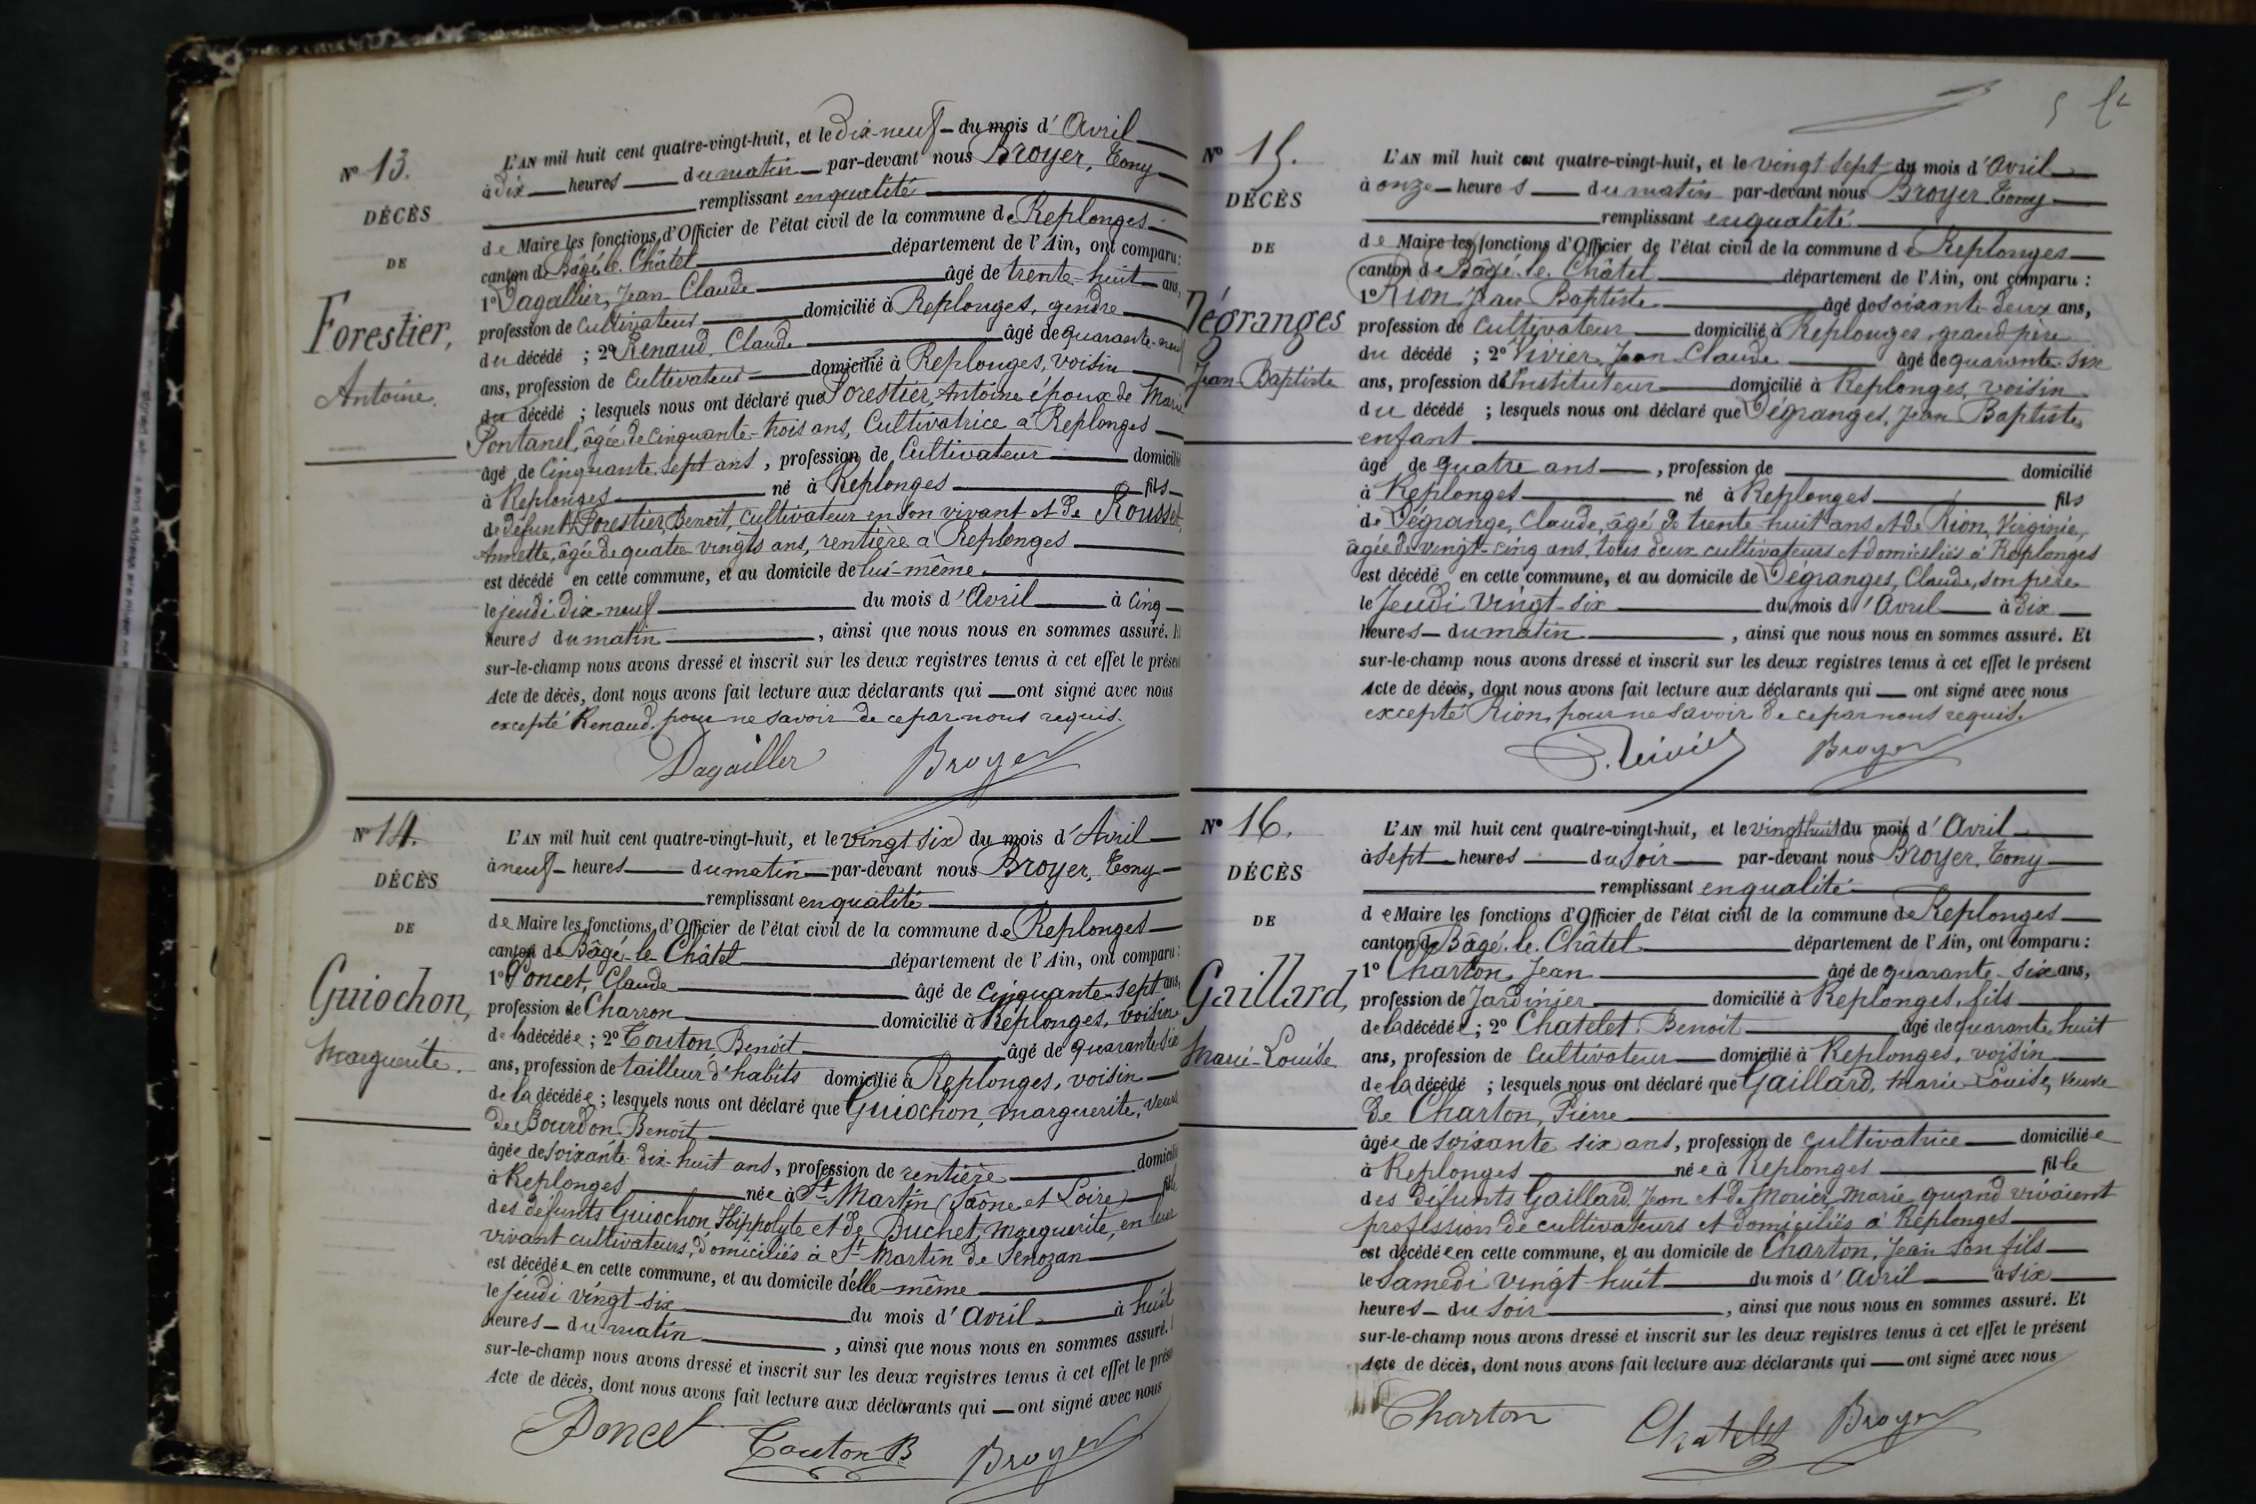 Nº 13.
DÉCÈS
DE
Forestier,
Antoine.
L'AN mil huit cent quatre-vingt-huit, et le dix-neuf du mois d'Avril
à dix heures du matin par-devant nous Broyer, Tony
remplissant en qualité
de Maire les fonctions d'Officier de l'état civil de la commune de Replonges
canton de Bâgé-le-Châtel département de l'Ain, ont comparu:
1º Dagallier, Jean-Claude âgé de trente-huit ans,
profession de Cultivateur domicilié à Replonges, gendre
du décédé ; 2º Renaud, Claude âgé de quarante-neuf
ans, profession de Cultivateur domicilié à Replonges, voisin
du décédé ; lesquels nous ont déclaré que Forestier, Antoine époux de Marie
Pontanel, âgée de cinquante-trois ans, Cultivatrice à Replonges
âgé de Cinquante sept ans, profession de Cultivateur domicilié
à Replonges né à Replonges fils
de défunt Forestier, Benoit, cultivateur en son vivant et de Rousset,
Annette, âgée de quatre vingts ans, rentière à Replonges
est décédé en cette commune, et au domicile de lui-même
le jeudi dix-neuf du mois d'Avril à cinq
heures du matin , ainsi que nous nous en sommes assuré. Et
sur-le-champ nous avons dressé et inscrit sur les deux registres tenus à cet effet le présent
Acte de décès, dont nous avons fait lecture aux déclarants qui ont signé avec nous
excepté Renaud, pour ne savoir de ce par nous requis.
Dagailler Broyer
Nº 14.
DÉCÈS
DE
Guiochon,
Marguerite.
L'AN mil huit cent quatre-vingt-huit, et le vingt six du mois d'Avril
à neuf heures du matin par-devant nous Broyer, Tony
remplissant en qualité
de Maire les fonctions d'Officier de l'état civil de la commune de Replonges
canton de Bâgé-le-Châtel département de l'Ain, ont comparu:
1º Poncet, Claude âgé de cinquante-sept ans,
profession de Charron domicilié à Replonges, voisin
de la décédée ; 2º Touton Benoit âgé de quarante-six
ans, profession de tailleur d'habits domicilié à Replonges, voisin
de la décédée ; lesquels nous ont déclaré que Guiochon, Marguerite, veuve
de Bourdon Benoit
âgée de soixante dix-huit ans, profession de rentière domicilié
à Replonges née à St Martin (Saône et Loire) fille
des défunts Guiochon Hippolyte et de Buchet, Marguerite, en leur
vivant cultivateurs, domiciliés à St Martin de Senozan
est décédée en cette commune, et au domicile d'elle-même
le jeudi vingt-six du mois d'Avril à huit
heures du matin , ainsi que nous nous en sommes assuré.
sur-le-champ nous avons dressé et inscrit sur les deux registres tenus à cet effet le prése
Acte de décès, dont nous avons fait lecture aux déclarants qui ont signé avec nous
Poncet Touton B. Broyer
Nº 15.
DÉCÈS
DE
Dégranges
Jean-Baptiste
L'AN mil huit cent quatre-vingt-huit, et le vingt sept du mois d'Avril
à onze heures du matin par-devant nous Broyer Tony
remplissant en qualité
de Maire les fonctions d'Officier de l'état civil de la commune de Replonges
canton de Bâgé-le-Châtel département de l'Ain, ont comparu :
1º Rion, Jean Baptiste âgé de soixante deux ans,
profession de Cultivateur domicilié à Replonges, grand père
du décédé ; 2º Vivier, Jean-Claude âgé de quarante-six
ans, profession d'Instituteur domicilié à Replonges, voisin
du décédé ; lesquels nous ont déclaré que Dégranges, Jean Baptiste,
enfant
âgé de quatre ans , profession de domicilié
à Replonges né à Replonges fils
de Dégrange, Claude, âgé de trente-huit ans et de Rion, Virginie,
âgée de vingt-cinq ans, tous deux cultivateurs et domiciliés à Replonges
est décédé en cette commune, et au domicile de Dégranges, Claude, son père
le Jeudi vingt-six du mois d'Avril à dix
heures du matin , ainsi que nous nous en sommes assuré. Et
sur-le-champ nous avons dressé et inscrit sur les deux registres tenus à cet effet le présent
Acte de décès, dont nous avons fait lecture aux déclarants qui ont signé avec nous
excepté Rion, pour ne savoir de ce par nous requis.
Vivier Broyer
Nº 16.
DÉCÈS
DE
Gaillard,
Marie-Louise
L'AN mil huit cent quatre-vingt-huit, et le vingt huit du mois d'Avril
à sept heures du soir par-devant nous Broyer, Tony
remplissant en qualité
de Maire les fonctions d'Officier de l'état civil de la commune de Replonges
canton de Bâgé-le-Châtel département de l'Ain, ont comparu :
1º Charton, Jean âgé de quarante-six ans,
profession de Jardinier domicilié à Replonges, fils
de la décédée ; 2º Chatelet Benoit âgé de quarante huit
ans, profession de cultivateur domicilié à Replonges, voisin
de la décédé ; lesquels nous ont déclaré que Gaillard, Marie-Louise, veuve
de Charton, Pierre
âgée de soixante six ans, profession de cultivatrice domiciliée
à Replonges née à Replonges fille
des défunts Gaillard, Jean et de Morier, Marie quand vivaient
profession de cultivateurs et domiciliés à Replonges
est décédée en cette commune, et au domicile de Charton, Jean son fils
le samedi vingt-huit du mois d'Avril à six
heures du soir , ainsi que nous nous en sommes assuré. Et
sur-le-champ nous avons dressé et inscrit sur les deux registres tenus à cet effet le présent
Acte de décès, dont nous avons fait lecture aux déclarants qui ont signé avec nous
Charton Chatelet Broyer